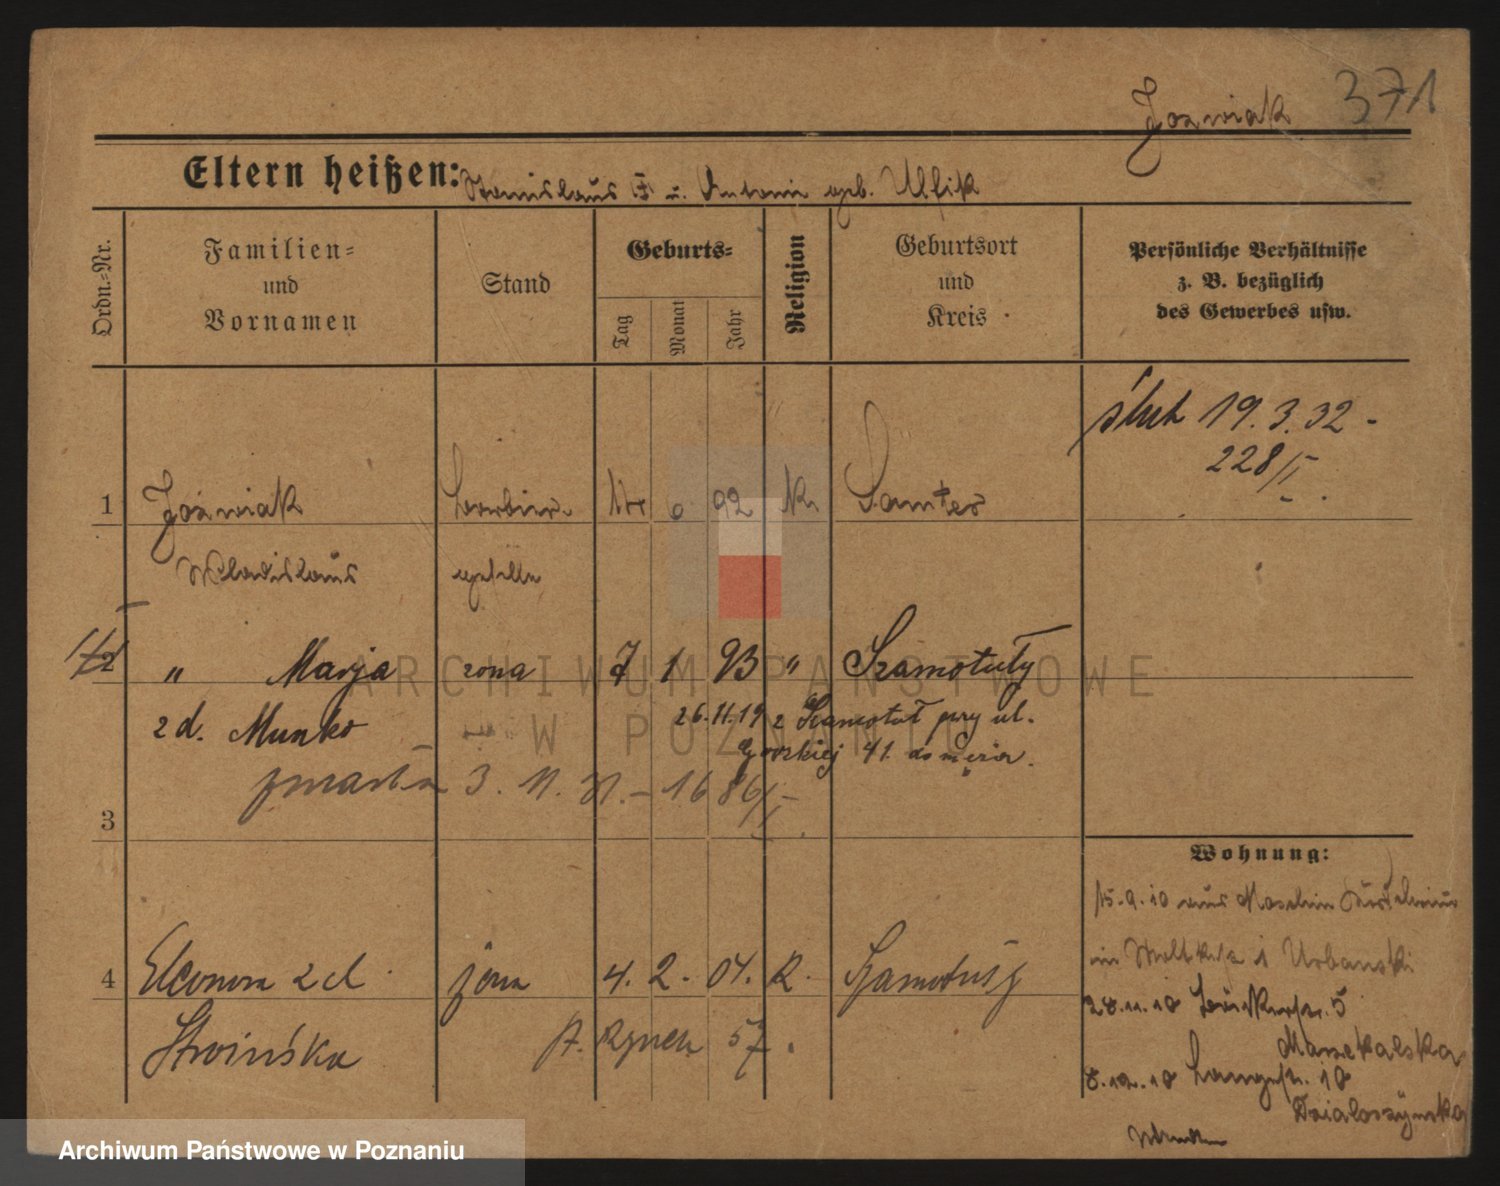 371
Jozwiak
Eltern heißen: Stanislaus u. Antonie geb. Ullik
Ordn.-Nr.
Familien-
und
Vornamen
Stand
Geburts-
Tag
Monat
Jahr
Religion
Geburtsort
und
Kreis
Persönliche Verhältnisse
z. B. bezüglich
des Gewerbes usw.
ślub 19.3.32 -
228/II.
1 Jozwiak 6 92 K. Samter
Wladislaus
2 " Marja żona 7 1 93 " Szamotuły
z d. Munko 26.11.19 z Szamotuł przy ul.
41 do męża.
zmarła 3. 11. 31. -
3
Wohnung:
15.9.10 aus
Urbanski
4 Eleonora z d. żona 4. 2. 04. R. Szamotuły
28.11.10 5
Stroińska St. Rynek 57.
Marzekalska
8.12.10 Langestr. 10
Dzialoszynska
ARCHIWUM PAŃSTWOWE
W POZNANIU
Archiwum Państwowe w Poznaniu